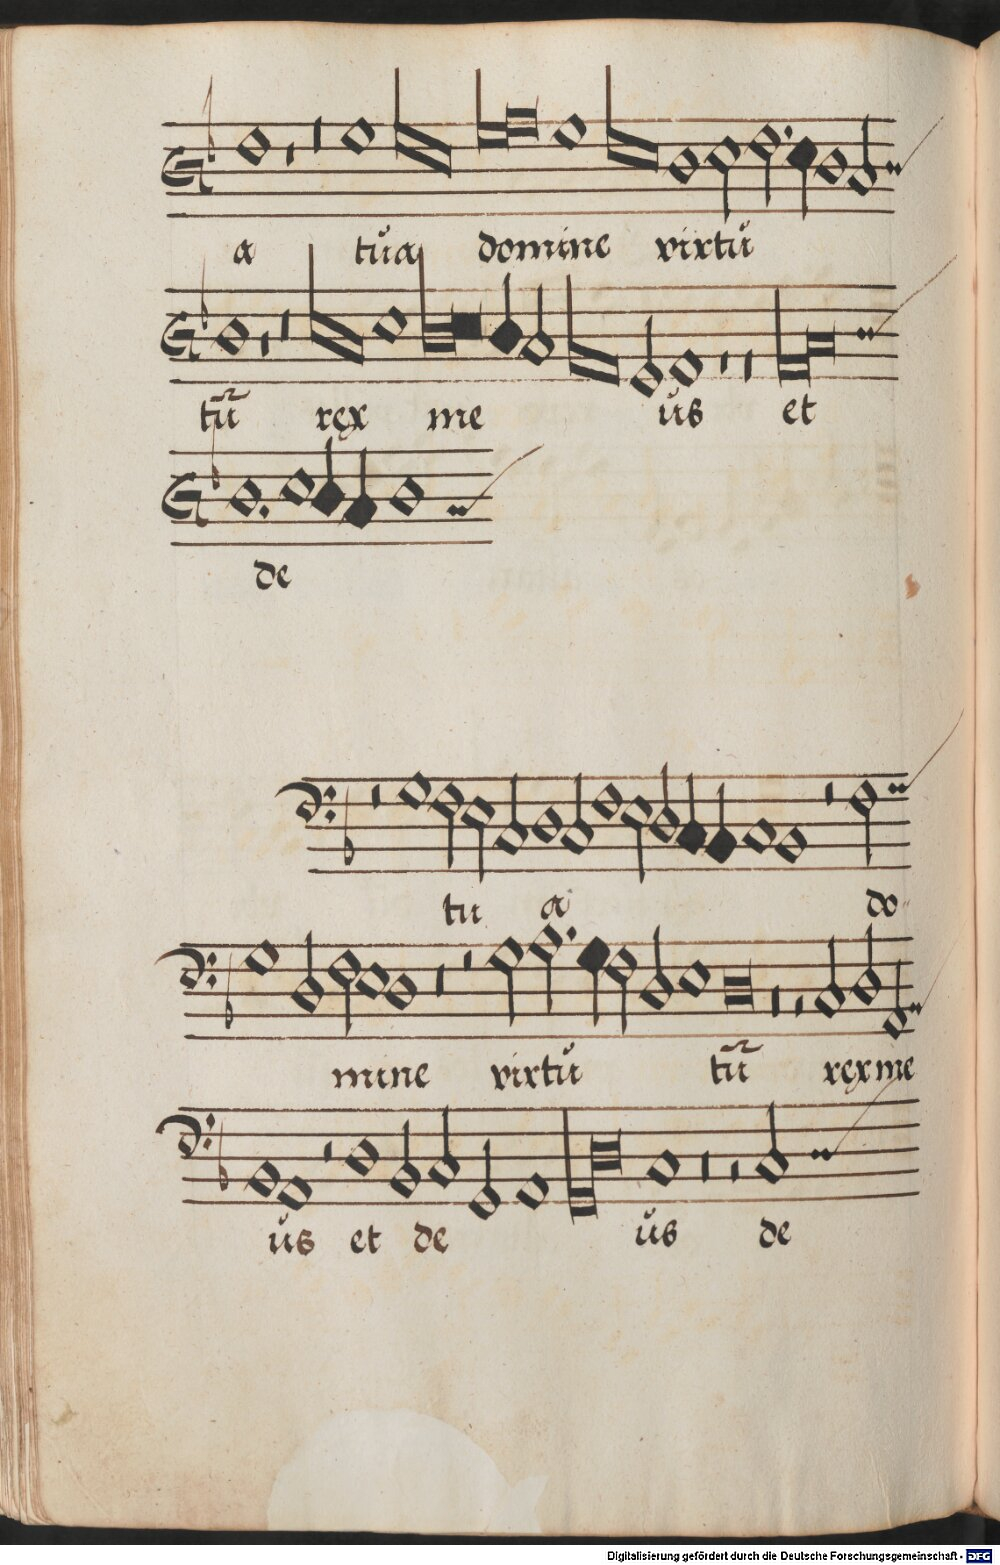 a tŭa domine virtŭ
tũ rex me ŭs et
de
tu a do
mine virtŭ tũ rex me
ŭs et de ŭs de
Digitalisierung gefördert durch die Deutsche Forschungsgemeinschaft - DFG